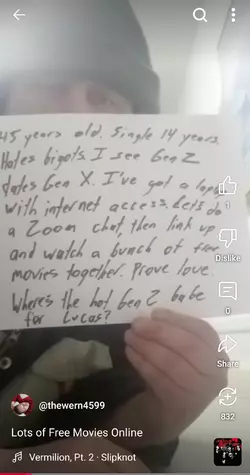 45 years old. Single 14 years.
Hates bigots. I see Gen Z
dates Gen X. I've got a laptop
with internet access. Let's do
a Zoom chat, then link up
and watch a bunch of free
movies together. Prove love.
Where's the hot Gen Z babe
for Lucas?
1
Dislike
0
Share
832
@thewern4599
Lots of Free Movies Online
Vermilion, Pt. 2 · Slipknot